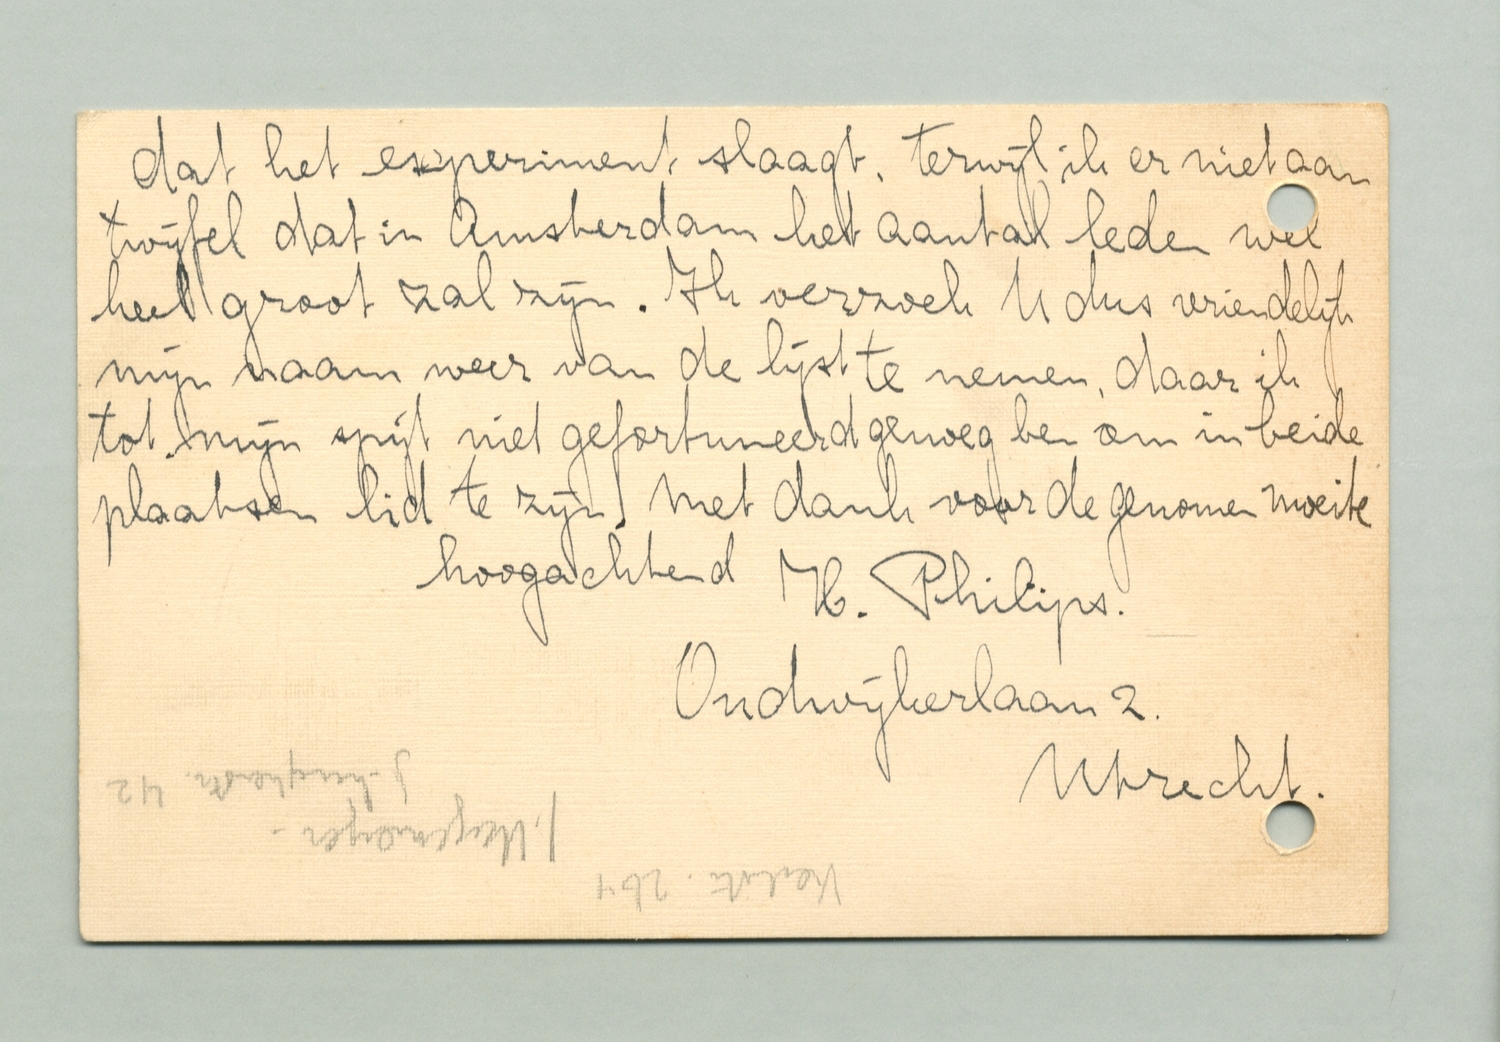 dat het experiment slaagt, terwijl ik er niet aan
twijfel dat in Amsterdam het aantal leden wel
heel groot zal zijn. Ik verzoek U dus vriendelijk
mijn naam weer van de lijst te nemen, daar ik
tot mijn spijt niet gefortuneerd genoeg ben om in beide
plaatsen lid te zijn! Met dank voor de genomen moeite
hoogachtend H. Philips.
Oudwijkerlaan 2.
Utrecht.
42
264